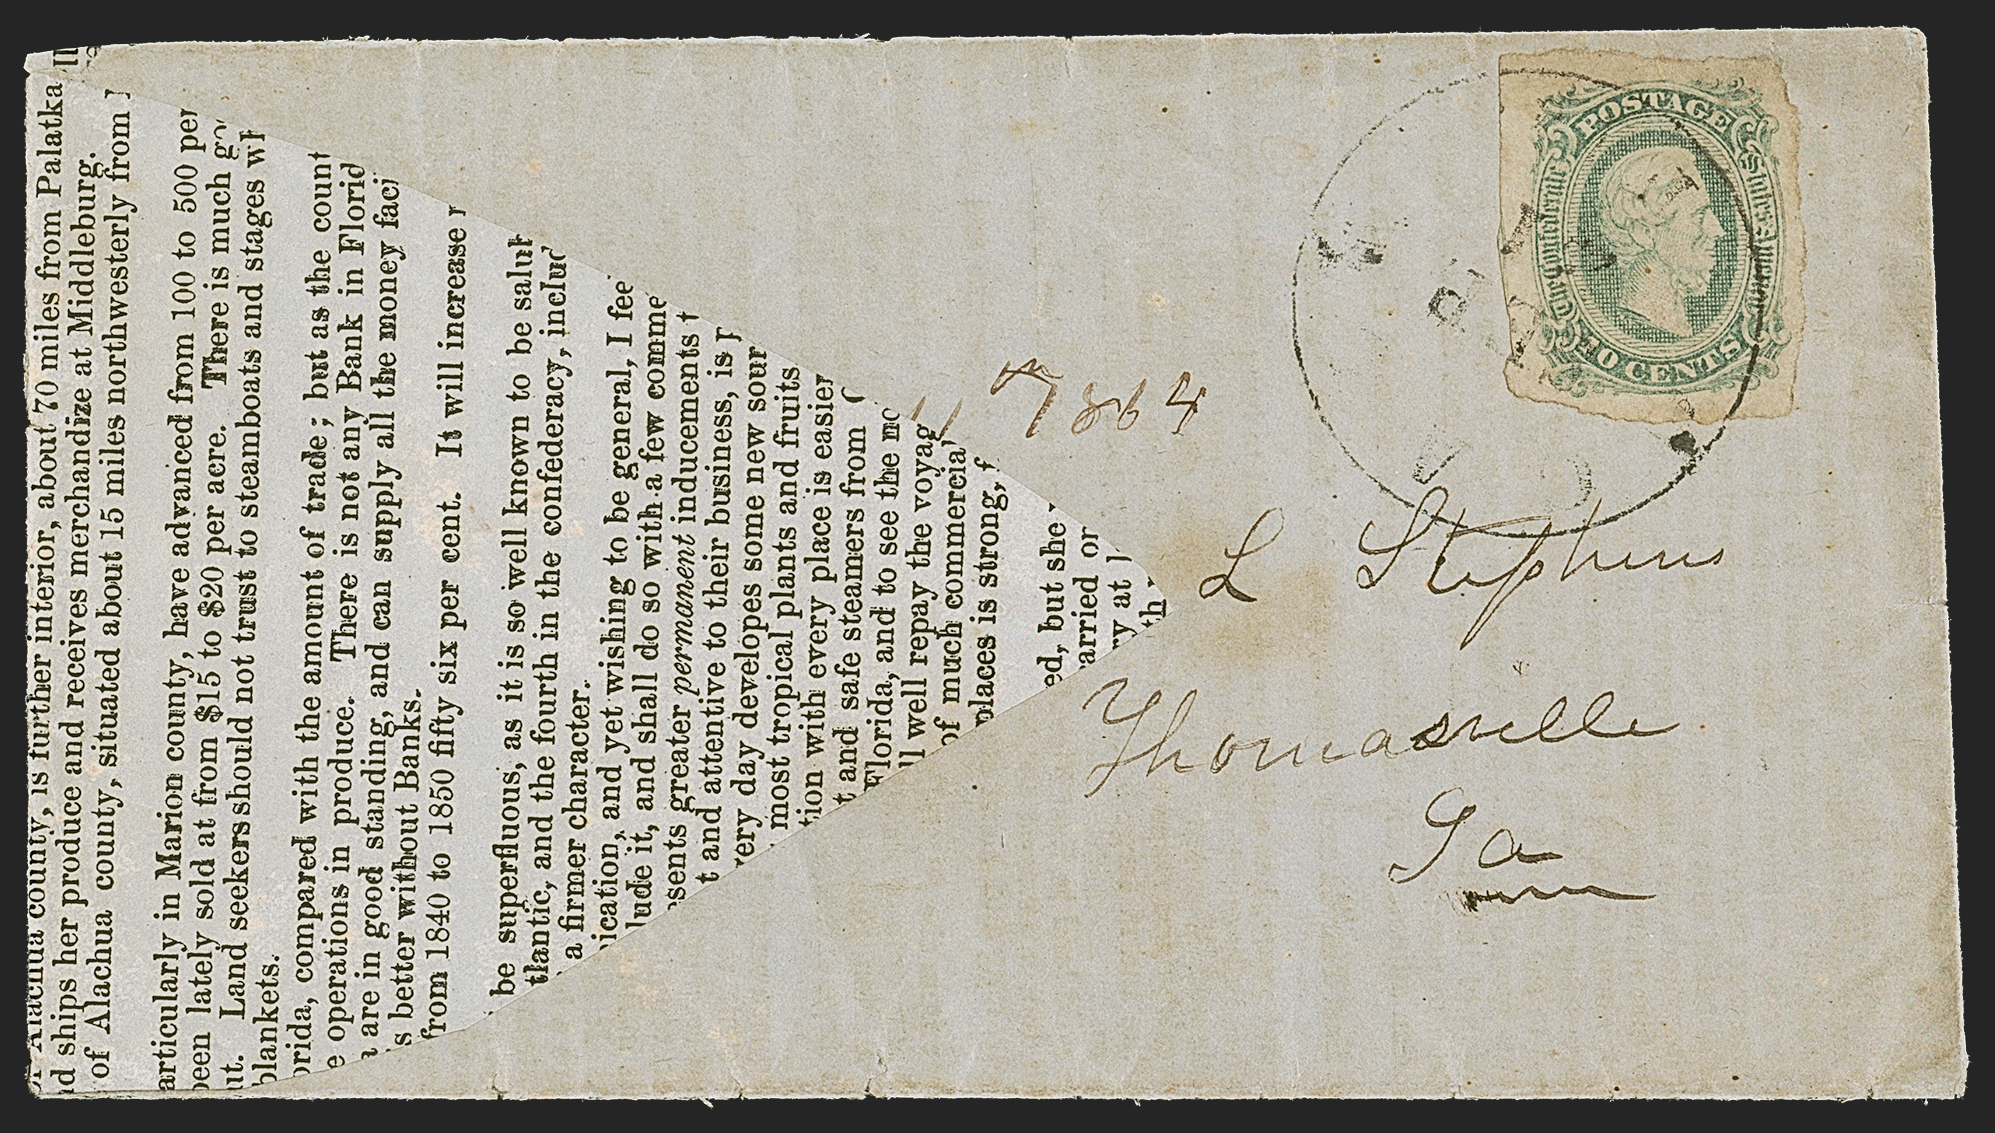 Alachua county, is further interior, about 70 miles from Palatka
ships her produce and receives merchandize at Middleburg.
of Alachua county, situated about 15 miles northwesterly from
articularly in Marion county, have advanced from 100 to 500 per
een lately sold at from $15 to $20 per acre. There is much
ut. Land seekers should not trust to steamboats and stages wh
blankets.
orida, compared with the amount of trade; but as the count
e operations in produce. There is not any Bank in Florid
are in good standing, and can supply all the money faci
s better without Banks.
from 1840 to 1850 fifty six per cent. It will increase
be superfluous, as it is so well known to be salub
tlantic, and the fourth in the confederacy, includ
a firmer character.
ication, and yet wishing to be general, I fee
lude it, and shall do so with a few comme
sents greater permanent inducements t
t and attentive to their business, is p
very day developes some new sour
most tropical plants and fruits
tion with every place is easier
t and safe steamers from
Florida, and to see the no
ll well repay the voyag
of much commercial
places is strong,
ed, but she
arried or
ry at
th
1864
POSTAGE
The Confederate States of America
10 CENTS
L Stephens
Thomasville
Ga